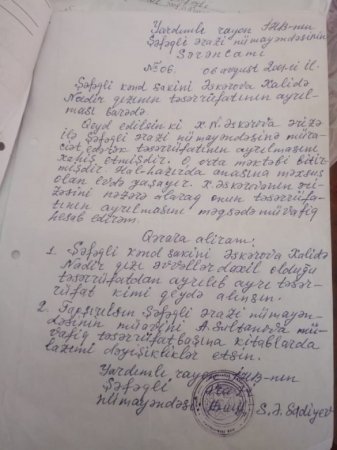 Yardımlı rayon İHB-nın
Şəfəqli ərazi nümayəndəsinin
Sərəncamı
№ 06. 06 avqust 2001-ci il.
Şəfəqli kənd sakini Əskərova Xalidə
Nadir qızının təsərrüfatının ayrıl-
ması barədə.
Qeyd edilsin ki X.N.Əskərova ərizə
ilə Şəfəqli ərazi nümayəndəsinə müra-
ciət edərək təsərrüfatının ayrılmasını
xahiş etmişdir. O, orta məktəbi bitir-
mişdir. Hal-hazırda anasına məxsus
olan evdə yaşayır. X.Əskərovanın əri-
zəsini nəzərə alaraq onun təsərrüfa-
tının ayrılmasını məqsədə müvafiq
hesab edirəm.
Qərara alıram:
1. Şəfəqli kənd sakini Əskərova Xalidə
Nadir qızı əvvəllər daxil olduğu
təsərrüfatdan ayrılıb ayrı təsər-
rüfat kimi qeydə alınsın.
2. Tapşırılsın Şəfəqli ərazi nümayən-
dəsinin müavini A.Sultanova mü-
vafiq təsərrüfatbaşına kitablarda
lazımi dəyişikliklər etsin.
Yardımlı rayon İHB-nın
Şəfəqli ərazi
nümayəndəsi: S.Ə.Sadiyev